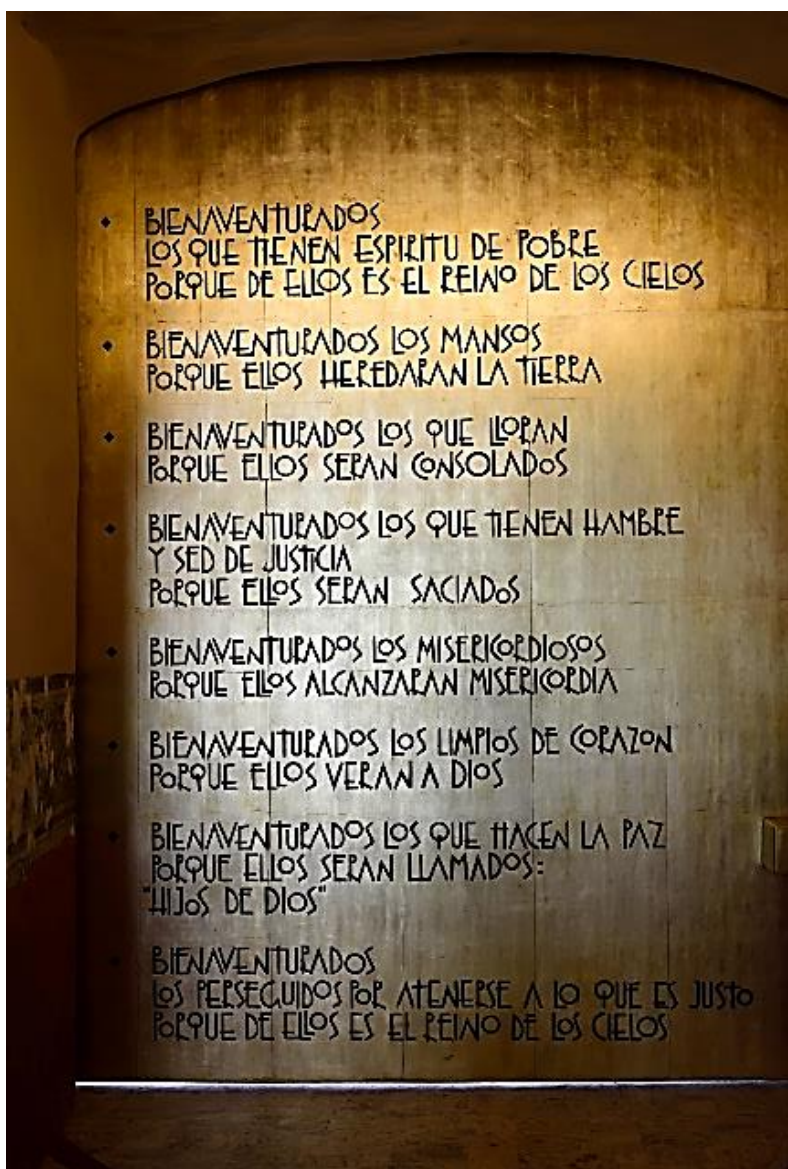 BIENAVENTURADOS
LOS QUE TIENEN ESPIRITU DE POBRE
PORQUE DE ELLOS ES EL REINO DE LOS CIELOS
BIENAVENTURADOS LOS MANSOS
PORQUE ELLOS HEREDARAN LA TIERRA
BIENAVENTURADOS LOS QUE LLORAN
PORQUE ELLOS SERAN CONSOLADOS
BIENAVENTURADOS LOS QUE TIENEN HAMBRE
Y SED DE JUSTICIA
PORQUE ELLOS SERAN SACIADOS
BIENAVENTURADOS LOS MISERICORDIOSOS
PORQUE ELLOS ALCANZARAN MISERICORDIA
BIENAVENTURADOS LOS LIMPIOS DE CORAZON
PORQUE ELLOS VERAN A DIOS
BIENAVENTURADOS LOS QUE HACEN LA PAZ
PORQUE ELLOS SERAN LLAMADOS:
"HIJOS DE DIOS"
BIENAVENTURADOS
LOS PERSEGUIDOS POR ATENERSE A LO QUE ES JUSTO
PORQUE DE ELLOS ES EL REINO DE LOS CIELOS